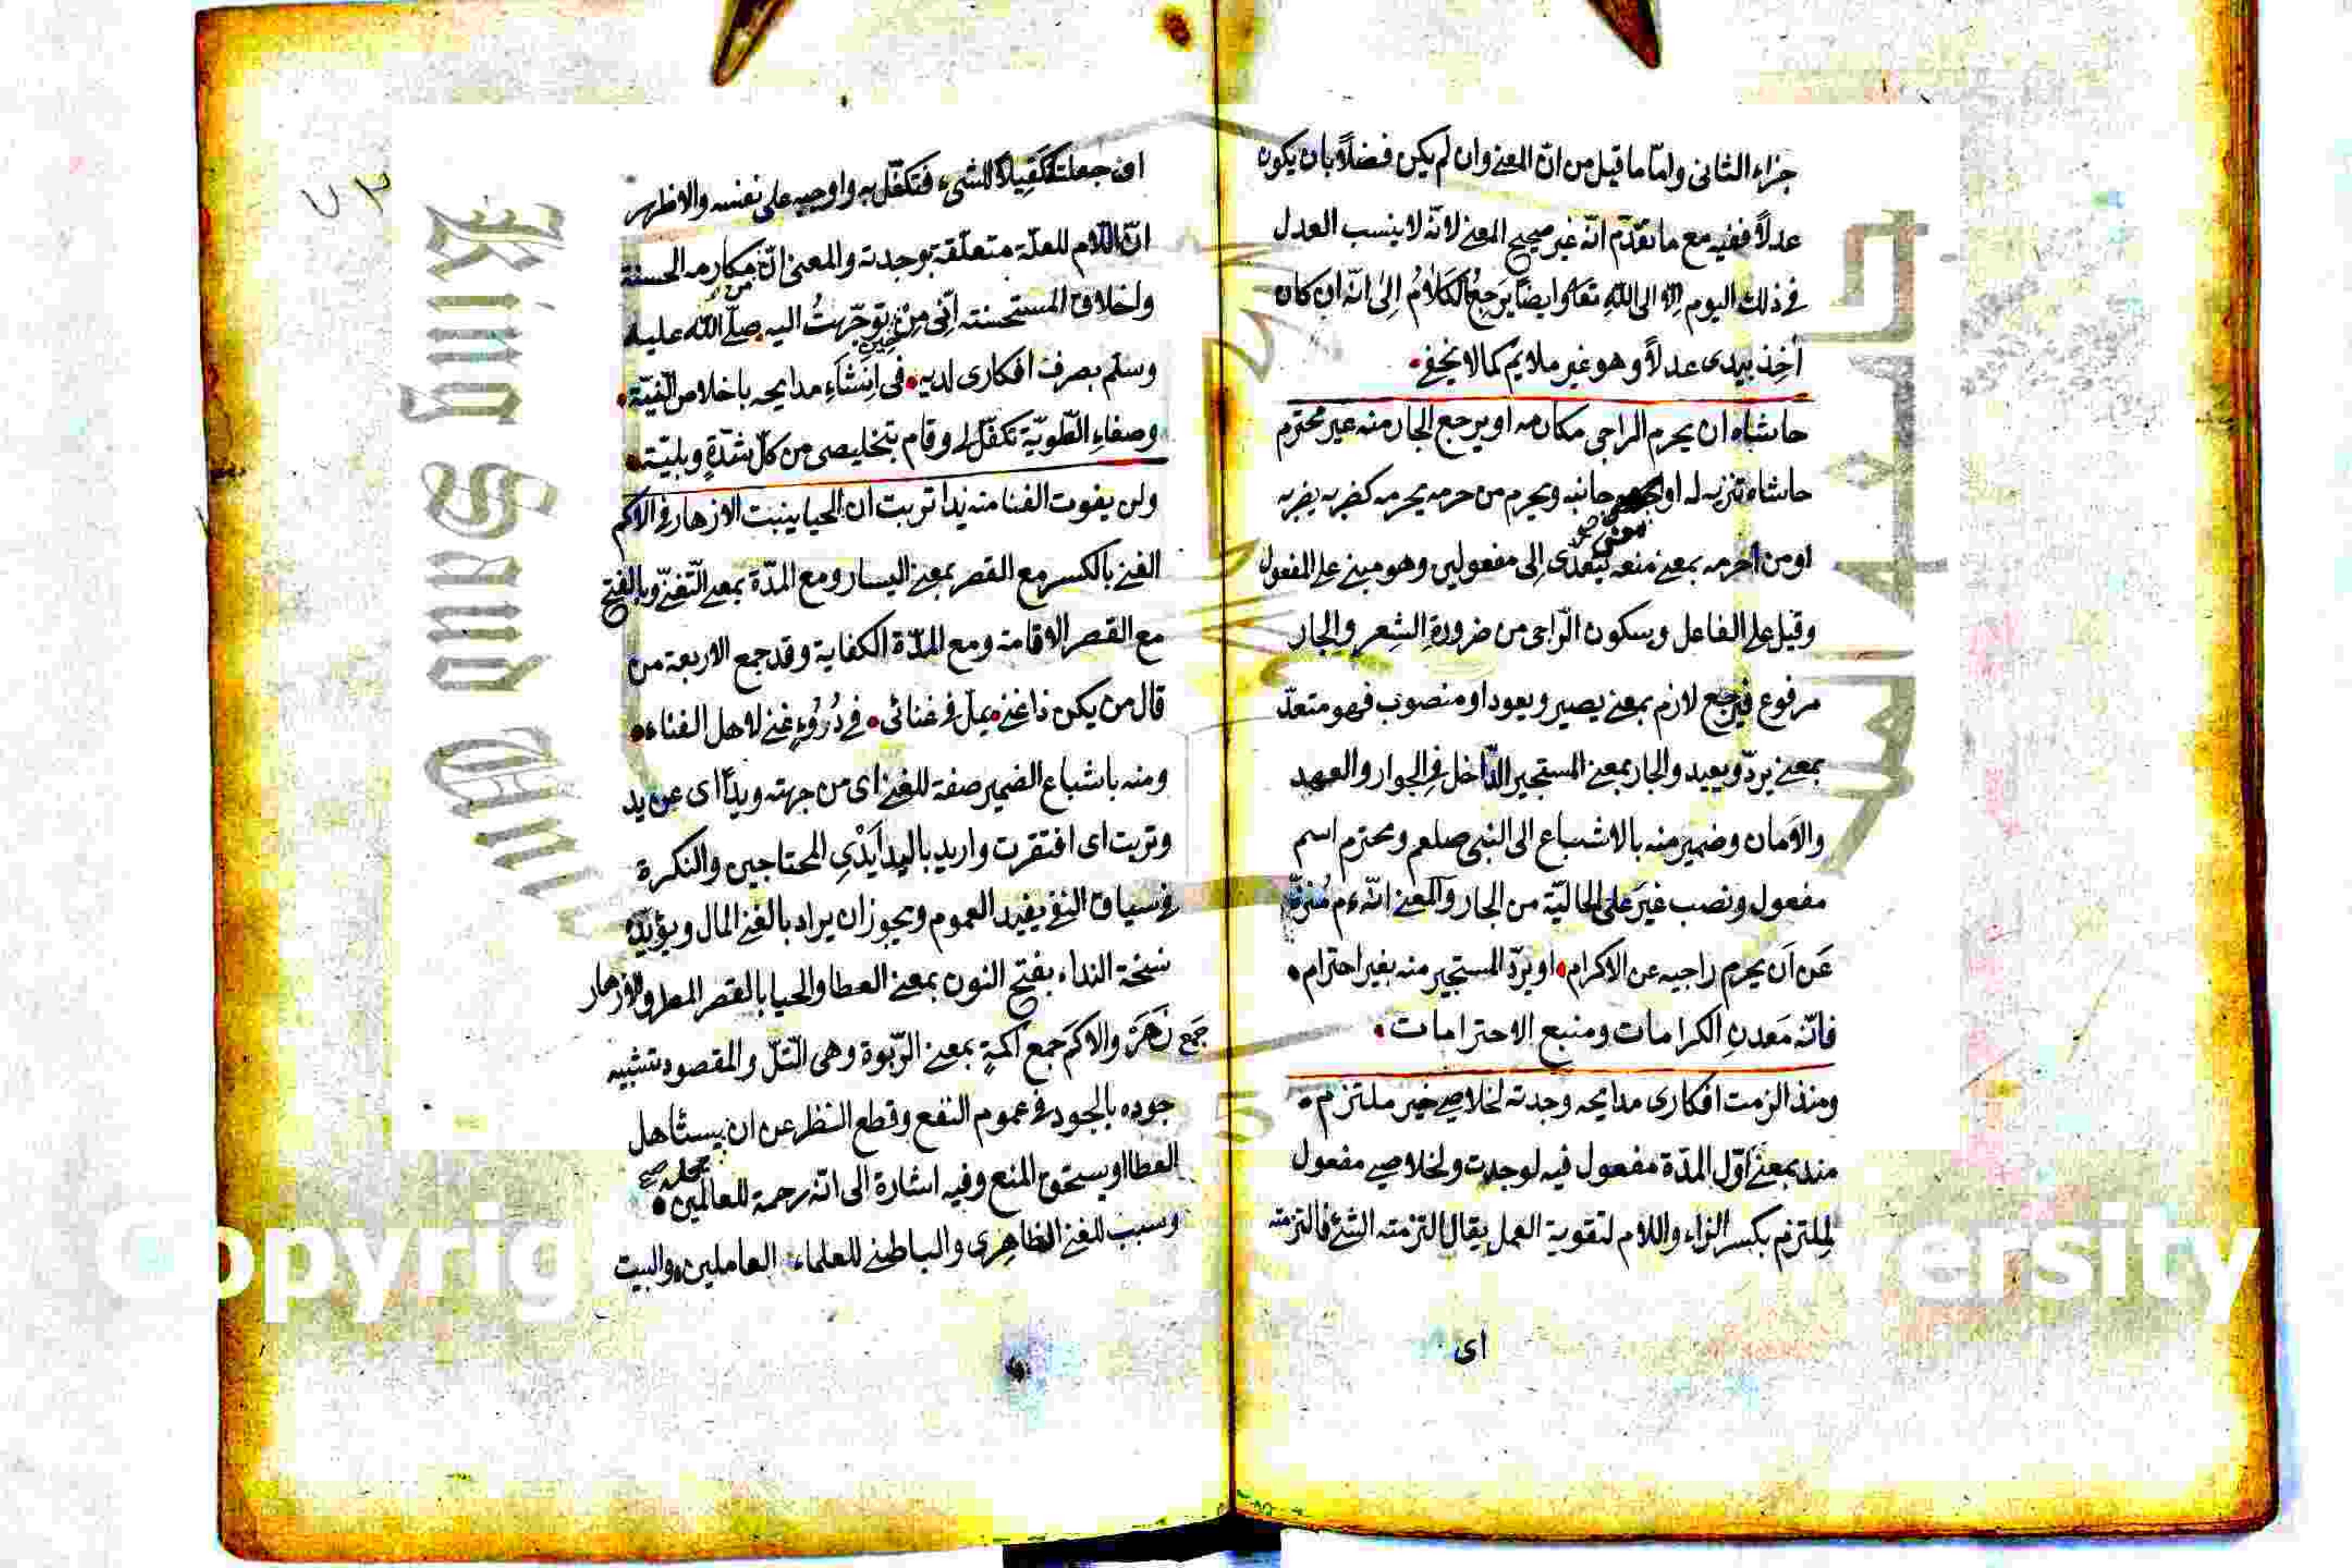 جزاء الثانى واما ما قيل من انّ المعنى وان لم يكن فضلاً بان يكون
عدلاً ففيه مع ما تقدّم انّه غير صحيح المعنى لانّه لا ينسب العدل
فى ذلك اليوم الا الى اللّه تعا وايضا يَرجِعُ الكَلامُ اِلىٰ انّه ان كان
آخِذ بيدى عدلاً وهو غير ملايم كما لا يخفى
حاشاه ان يحرم الراجى مكارمه او يرجع الجار منه غير محترم
حاشاه تنزيه له او جانبه ويحرم من حرمه يحرمه كضربه يضربه
او من احرمه بمعنى منعه يتعدّى اِلى مفعولين وهو مبنى على المفعول
وقيل على الفاعل وسكون الرّاجى من ضرورةِ الشِعرِ والجار
مرفوع فيرجع لازم بمعنى يصير ويعود او منصوب فهو متعدّ
بمعنى يردّ ويعيد والجار بمعنى المستجير الدّاخل فى الجوار والعهد
والاَمان وضمير منه بالاشباع الى النبى صلعم ومحترم اسم
مفعول ونصب غيرَ على الحاليّة من الجار والمعنى انّه ءم مُنزّه
عَن اَن يحرم راجيه عن الاكرام او يردّ المستجير منه بغير احترام
فانّه مَعدنِ الكرامات ومنبع الاحترامات
ومنذ الزمت افكارى مدايحه وجدته لخلاصى خير ملتزم
منذ بمعنى اوّل المدّة مفعول فيه لوجدت ولخلاصى مفعول
لِملتزم بكسر الزاء واللام لتقوية العمل يقال التزمته الشئ فالتزمته
اى
اى جعلته كَفِيلاً للشىء فَتكفّل به واوجبه على نفسه والاظهر
انّ اللّام للعلّة متعلّقة بوجدته والمعنى انّ من مكارمه الحسنة
واخلاق المستحسنته انّى مِنْ حين توجّهتُ اليه صلّى اللّه عليه
وسلم بصرف افكارى لديه فى اِنشَآءِ مدايحه باخلاص النّيّة
وصفاءِ الطّويّة تكفّل لى وقام بتخليصى من كلّ شدّةٍ وبليّة
ولن يفوت الغنا منه يدا تربت ان الحيا ينبت الازهار فى الاكم
الغنى بالكسر مع القصر بمعنى اليسار ومع المدّة بمعنى التّغنّى وبالفتح
مع القصر الاقامة ومع المدّة الكفاية وقد جمع الاربعة من
قال من يكن ذا غنى يمل فى غنائى فى غنى لاهل الغناء
ومنه باشباع الضمير صفة للغنى اى من جهته ويداً اى عن يد
وتربت اى افتقرت واريد باليد اَيَدْىِ المحتاجين والنكرة
فى سياق النّفى يفيد العموم ويجوز ان يراد بالغنى المال ويؤيّده
نسخة النداء بفتح النون بمعنى العطا والحيا بالقصر المطر والازهار
جَمع زَهَرَة والاكَم جمع اكمةٍ بمعنى الرّبوة وهى التّلّ والمقصود تشبيه
جوده بالجود فى عموم النفع وقطع النظر عن ان يستأهل
العطا او يستحق المنع وفيه اشارة الى انّه رحمة للعالمين
وسبب للغنى الظاهرى والباطنى للعلماء العاملين والبيت
King Saud Univ
1957
Copyrig
ersity